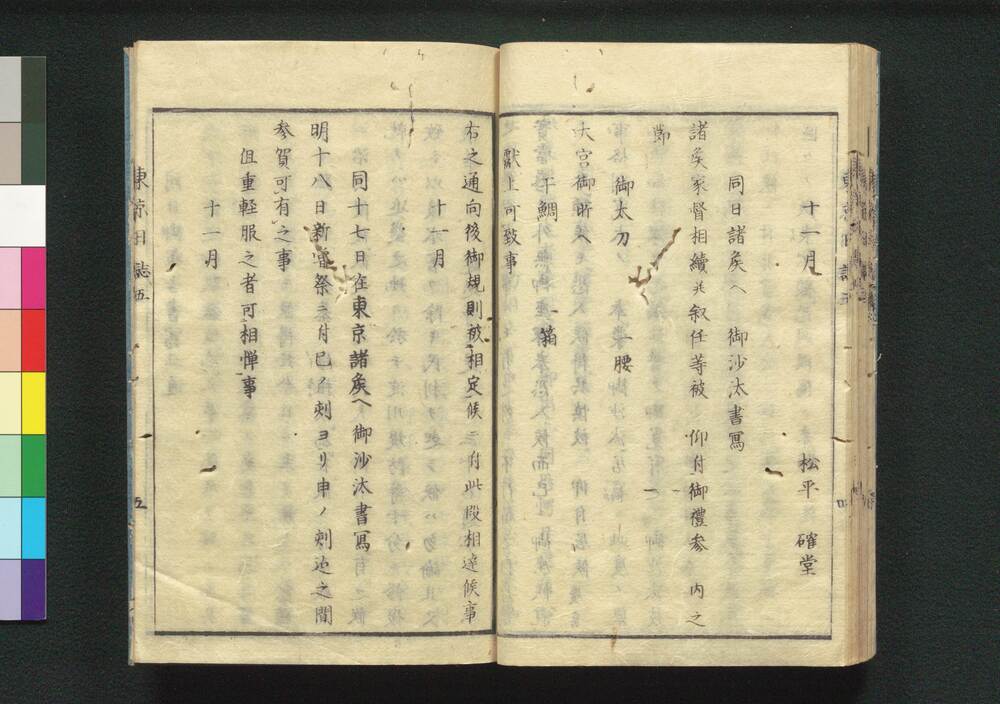 十一月 松平 確堂
同日諸矦へ 御沙汰書寫
諸矦家督相續并叙任等被 仰付御禮參 内之
節
御太刀 一腰
大宮御所へ
干鯛 一箱
獻上可致事
右之通向後御規則被相定候ニ付此段相達候事
十一月
同十七日在東京諸矦へ御沙汰書寫
明十八日新嘗祭ニ付巳ノ刻ヨリ申ノ刻迄之間
參賀可有之事
但重軽服之者可相憚事
十一月
東京日誌 五
五